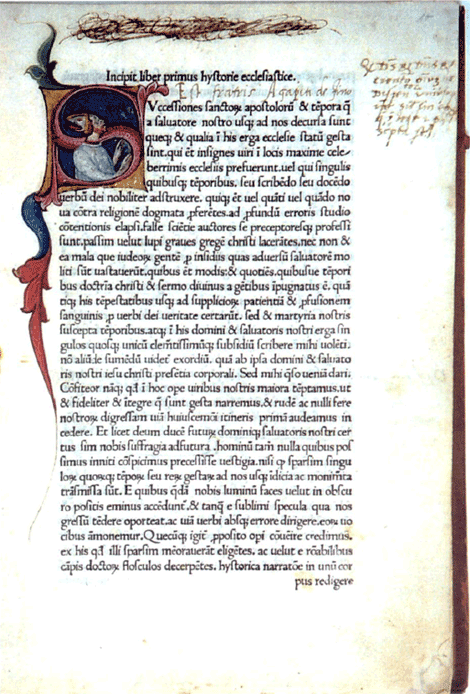 Incipit liber primus hystorie ecclesiastice.
Est fratris
SVccessiones sanctoꝝ apostoloꝝ & tēpora q̄
a saluatore nostro usq; ad nos decursa sunt
queq; & qualia ī his erga ecclesie statū gesta
sint.qui ēt insignes uiri ī locis maxime cele⸗
berrimis ecclesiis prefuerunt.uel qui singulis
quibusq; tēporibus. seu scribēdo seu docēdo
uerbū dei nobiliter adstruxere. quiq; et uel quāti uel quādo no
ua cōtra religionē dogmata ꝓferētes.ad ꝓfundū erroris studio
cōtentionis elapsi.false sciētie auctores se preceptoresq; professi
sunt.passim uelut lupi graues gregē christi lacerātes.nec non &
ea mala que iudeoꝝ gentē ꝑ insidiis quas aduersū saluatorē mo
liti sūt uastauerūt.quibus et modis:& quotiēs.quibusue tēpori
bus doctrīa christi & sermo diuinus a gētibus īpugnatus ē. quā
tiq; his tēpestatibus usq; ad supplicioꝝ patientiā & ꝓfusionem
sanguinis ꝑ uerbi dei ueritate certarūt. sed & martyria nostris
suscepta tēporibus.atq; ī his domini & saluatoris nostri erga sin
gulos quosq; unicū clemētissimūq; subsidiū scribere mihi uolēti.
nō aliūde sumēdū uidet̄ exordiū. quā ab ipsa domini & saluato
ris nostri iesu christi presētia corporali. Sed mihi q̄so uenia dari.
Cōfiteor nāq; q̄a ī hoc ope uiribus nostris maiora tēptamus.ut
& fideliter & ītegre q̄ sunt gesta narremus.& rudē ac nulli fere
nostroꝝ digressam uiā huiuscemōi itineris primā audeamus in
cedere. Et licet deum ducē futuꝝ dominiq; saluatoris nostri cer
tus sim nobis suffragia adfutura .hominū tam̄ nulla quibus pos
simus inniti cōspicimus precessisse uestigia.nisi q̄ sparsim singu
loꝝ quoꝝq; tēpoꝝ seu reꝝ gestaꝝ ad nos usq; idicia ac monimēta
trāsmissa sūt. E quibus q̄dā nobis luminū faces uelut in obscu
ro positis eminus accēdunt̄.& tanq̄ e sublimi specula qua nos
gressū tēdere oporteat.ac uiā uerbi absq; errore dirigere.eoꝝ uo
cibus āmonemur. Quecūq; igit̄ ꝓposito opi cōueire credimus.
ex his q̄a illi sparsim mēorauerāt eligētes. ac uelut e rōabilibus
cāpis doctoꝝ flosculos decerpētes. hystorica narratiōe in unū cor
pus redigere